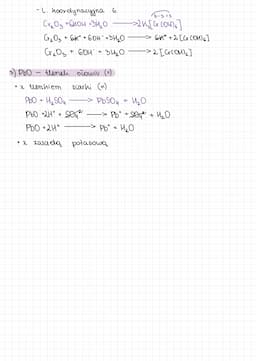 - L. koordynacyjna 6
Cr₂O₃ + 6KOH + 3H₂O ⟶ 2K₃[Cr(OH)₆]
Cr₂O₃ + 6K⁺ + 6OH⁻ + 3H₂O ⟶ 6K⁺ + 2[Cr(OH)₆]
Cr₂O₃ + 6OH⁻ + 3H₂O ⟶ 2[Cr(OH)₆]
PbO - tlenek ołowiu (II)
• z tlenkiem siarki (VI)
PbO + H₂SO₄ ⟶ PbSO₄ + H₂O
PbO + 2H⁺ + SO₄²⁻ ⟶ Pb²⁺ + SO₄²⁻ + H₂O
PbO + 2H⁺ ⟶ Pb²⁺ + H₂O
• z zasadą potasową